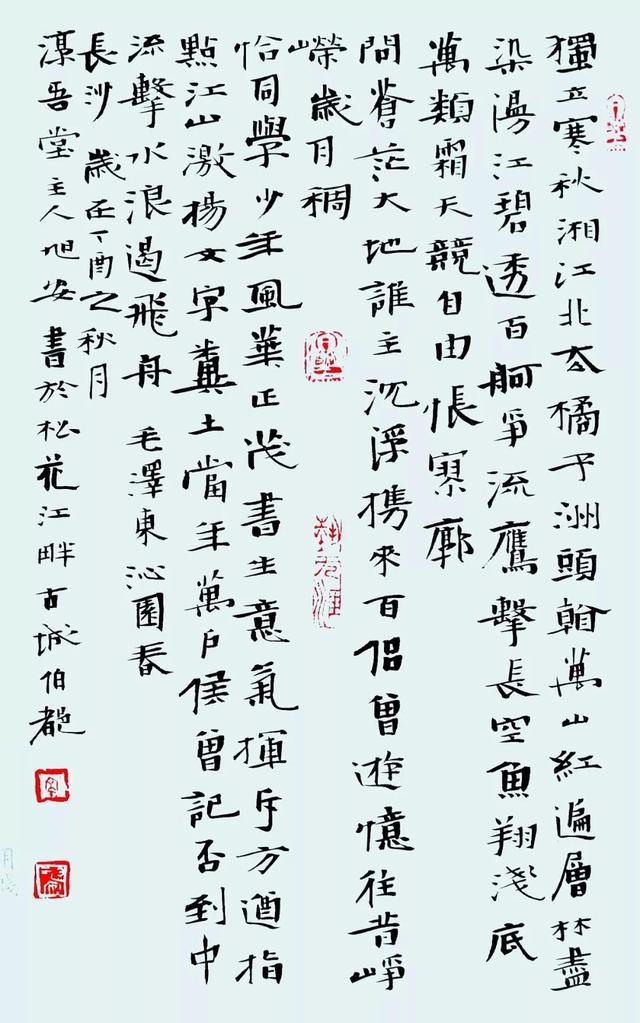 獨立寒秋湘江北去橘子洲頭看萬山紅遍層林盡
染漫江碧透百舸爭流鷹擊長空魚翔淺底
萬類霜天競自由悵寥廓
問蒼茫大地誰主沉浮携來百侶曾遊憶往昔崢
嶸歲月稠
恰同學少年風華正茂書生意氣揮斥方遒指
點江山激揚文字糞土當年萬戶侯曾記否到中
流擊水浪遏飛舟 毛澤東沁園春
長沙 歲在丁酉之秋月
吾堂主人旭安書於松花江畔古城伯都